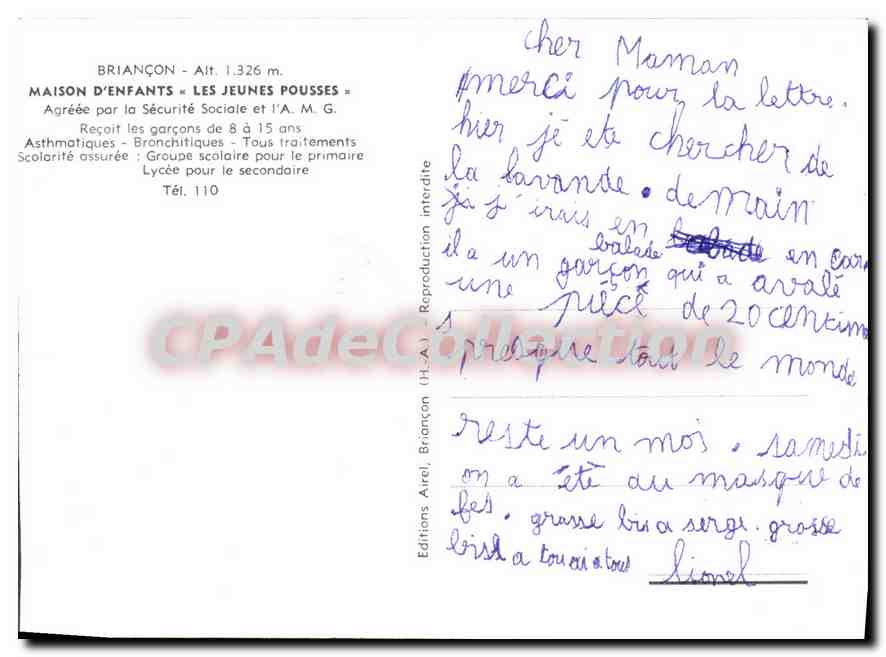 BRIANÇON - Alt. 1.326 m.
MAISON D'ENFANTS « LES JEUNES POUSSES »
Agréée par la Sécurité Sociale et l'A. M. G.
Reçoit les garçons de 8 à 15 ans
Asthmatiques - Bronchitiques - Tous traitements
Scolarité assurée : Groupe scolaire pour le primaire
Lycée pour le secondaire
Tél. 110
Editions Airel, Briançon (H.-A.) - Reproduction interdite
cher Maman
merci pour la lettre.
hier jé eté chercher de
la lavande. demain
j'irais en
balade en car
il a un garçon qui a avalé
une piéce de 20 centime
s presque tout le monde
reste un mois. samedi
on a été au masque de
fes. grosse bis a serge. grosse
bise a
lionel
CPAdeCollection